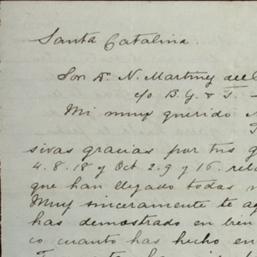 Santa Catalina.
Sor Dn N. Martinez del
c/o B. G. & T.
Mi muy querido
sivas gracias por tus
4. 8. 18 y Oct 2. 9 y 16.
que han llegado todas
Muy sinceramente te
has demostrado en bien
co cuanto has hecho en